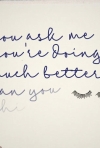 ou ask me
ou're doing
uch better
an you
he